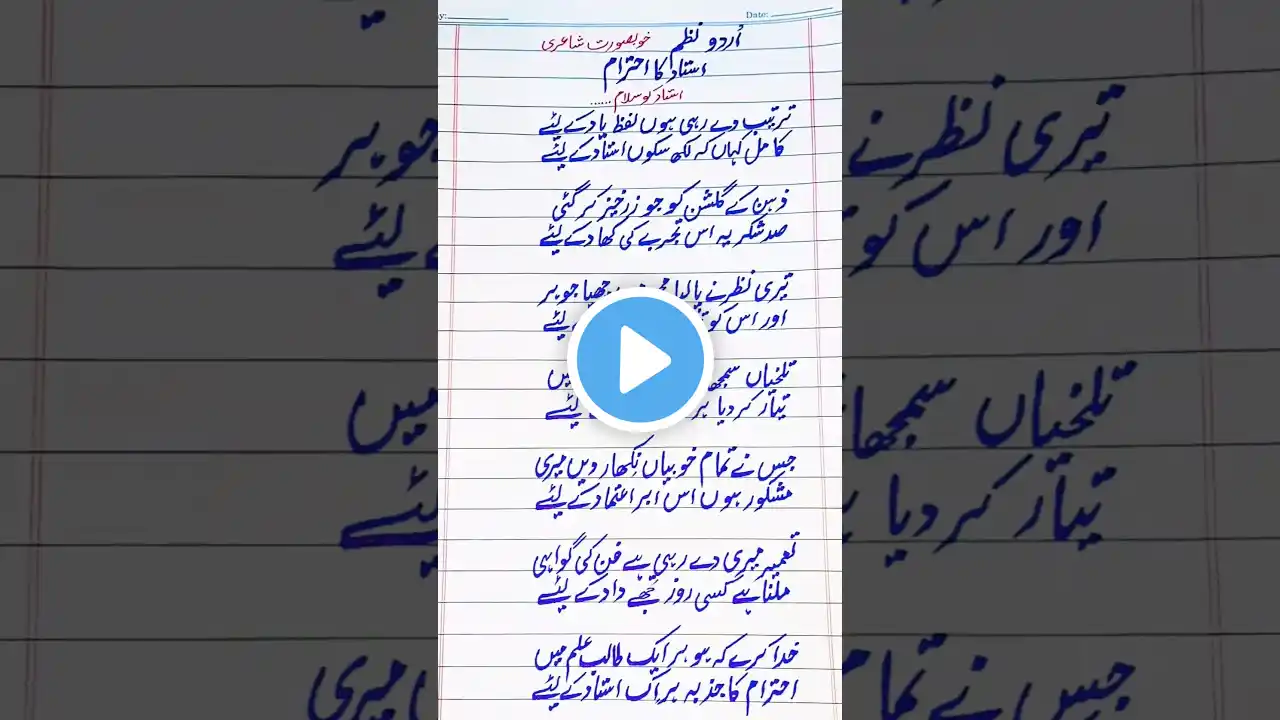 Date:
اُردو نظم خوبصورت شاعری
استاد کا احترام
استاد کو سلام ......
ترتیب دے رہی ہوں لفظ یاد کے لئے
کامل کہاں کہ لکھ سکوں استاد کے لئے
ذہن کے گلشن کو جو زرخیز کر گئی
صد شکریہ اس تجربے کی کھاد کے لئے
تیری نظر نے پالیا چھپا جوہر
اور اس کو لئے
تلخیاں میں
تیار کر دیا لئے
جس نے تمام خوبیاں نکھار دیں میری
مشکور ہوں اس ابر اعتماد کے لئے
تعمیر میری دے رہی ہے فن کی گواہی
ملنا ہے کسی روز تجھے داد کے لئے
خدا کرے کہ ہو ہر ایک طالب علم میں
احترام کا جذبہ ہر اک استاد کے لئے